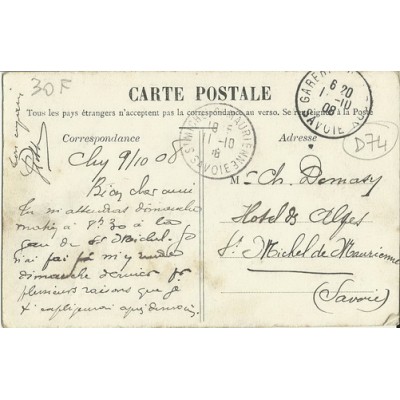 30F
CARTE POSTALE
Tous les pays étrangers n'acceptent pas la correspondance au verso. Se renseigner à la Poste
Correspondance
Adresse
6 20
10
08
SAVOIE
ST MICHEL DE MAURIENNE
18
11 -10
SAVOIE
D74
9/10 08
Bien cher ami
Tu m'attendras dimanche
matin à 8h 30 à la
gare de St Michel. Je
n'ai m'y rendre
dimanche dernier pr
plusieurs raisons que je
t'expliquerai après dimanche
M. Ch. Demasy
Hotel des Alpes
St Michel de Maurienne
(Savoie)